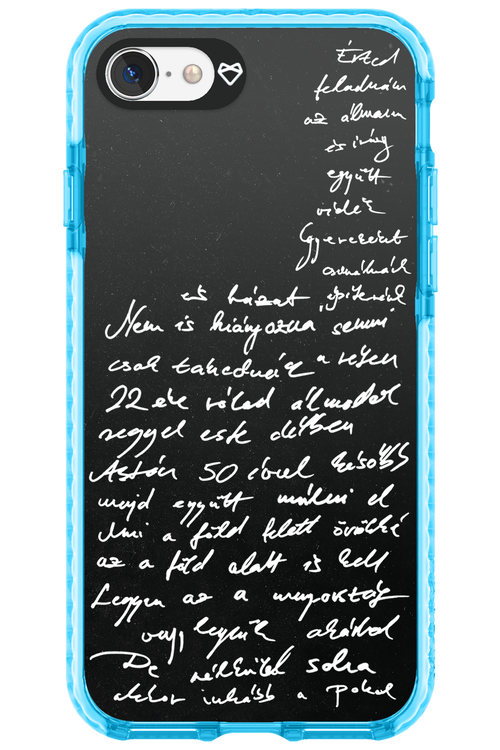 Érted
feladnám
az álmaim
és irány
együtt
vidék
Gyerekeket
csinálnánk
és házat építenénk
Nem is hiányozna semmi
csak tehednék a réten
22 éve rólad álmodok
reggel este délben
Aztán 50 évvel később
majd együtt múlni el
Ami a föld felett örökké
az a föld alatt is kell
Legyen az a mennyország
vagy legyünk akárhol
De nélküled soha
akkor inkább a pokol